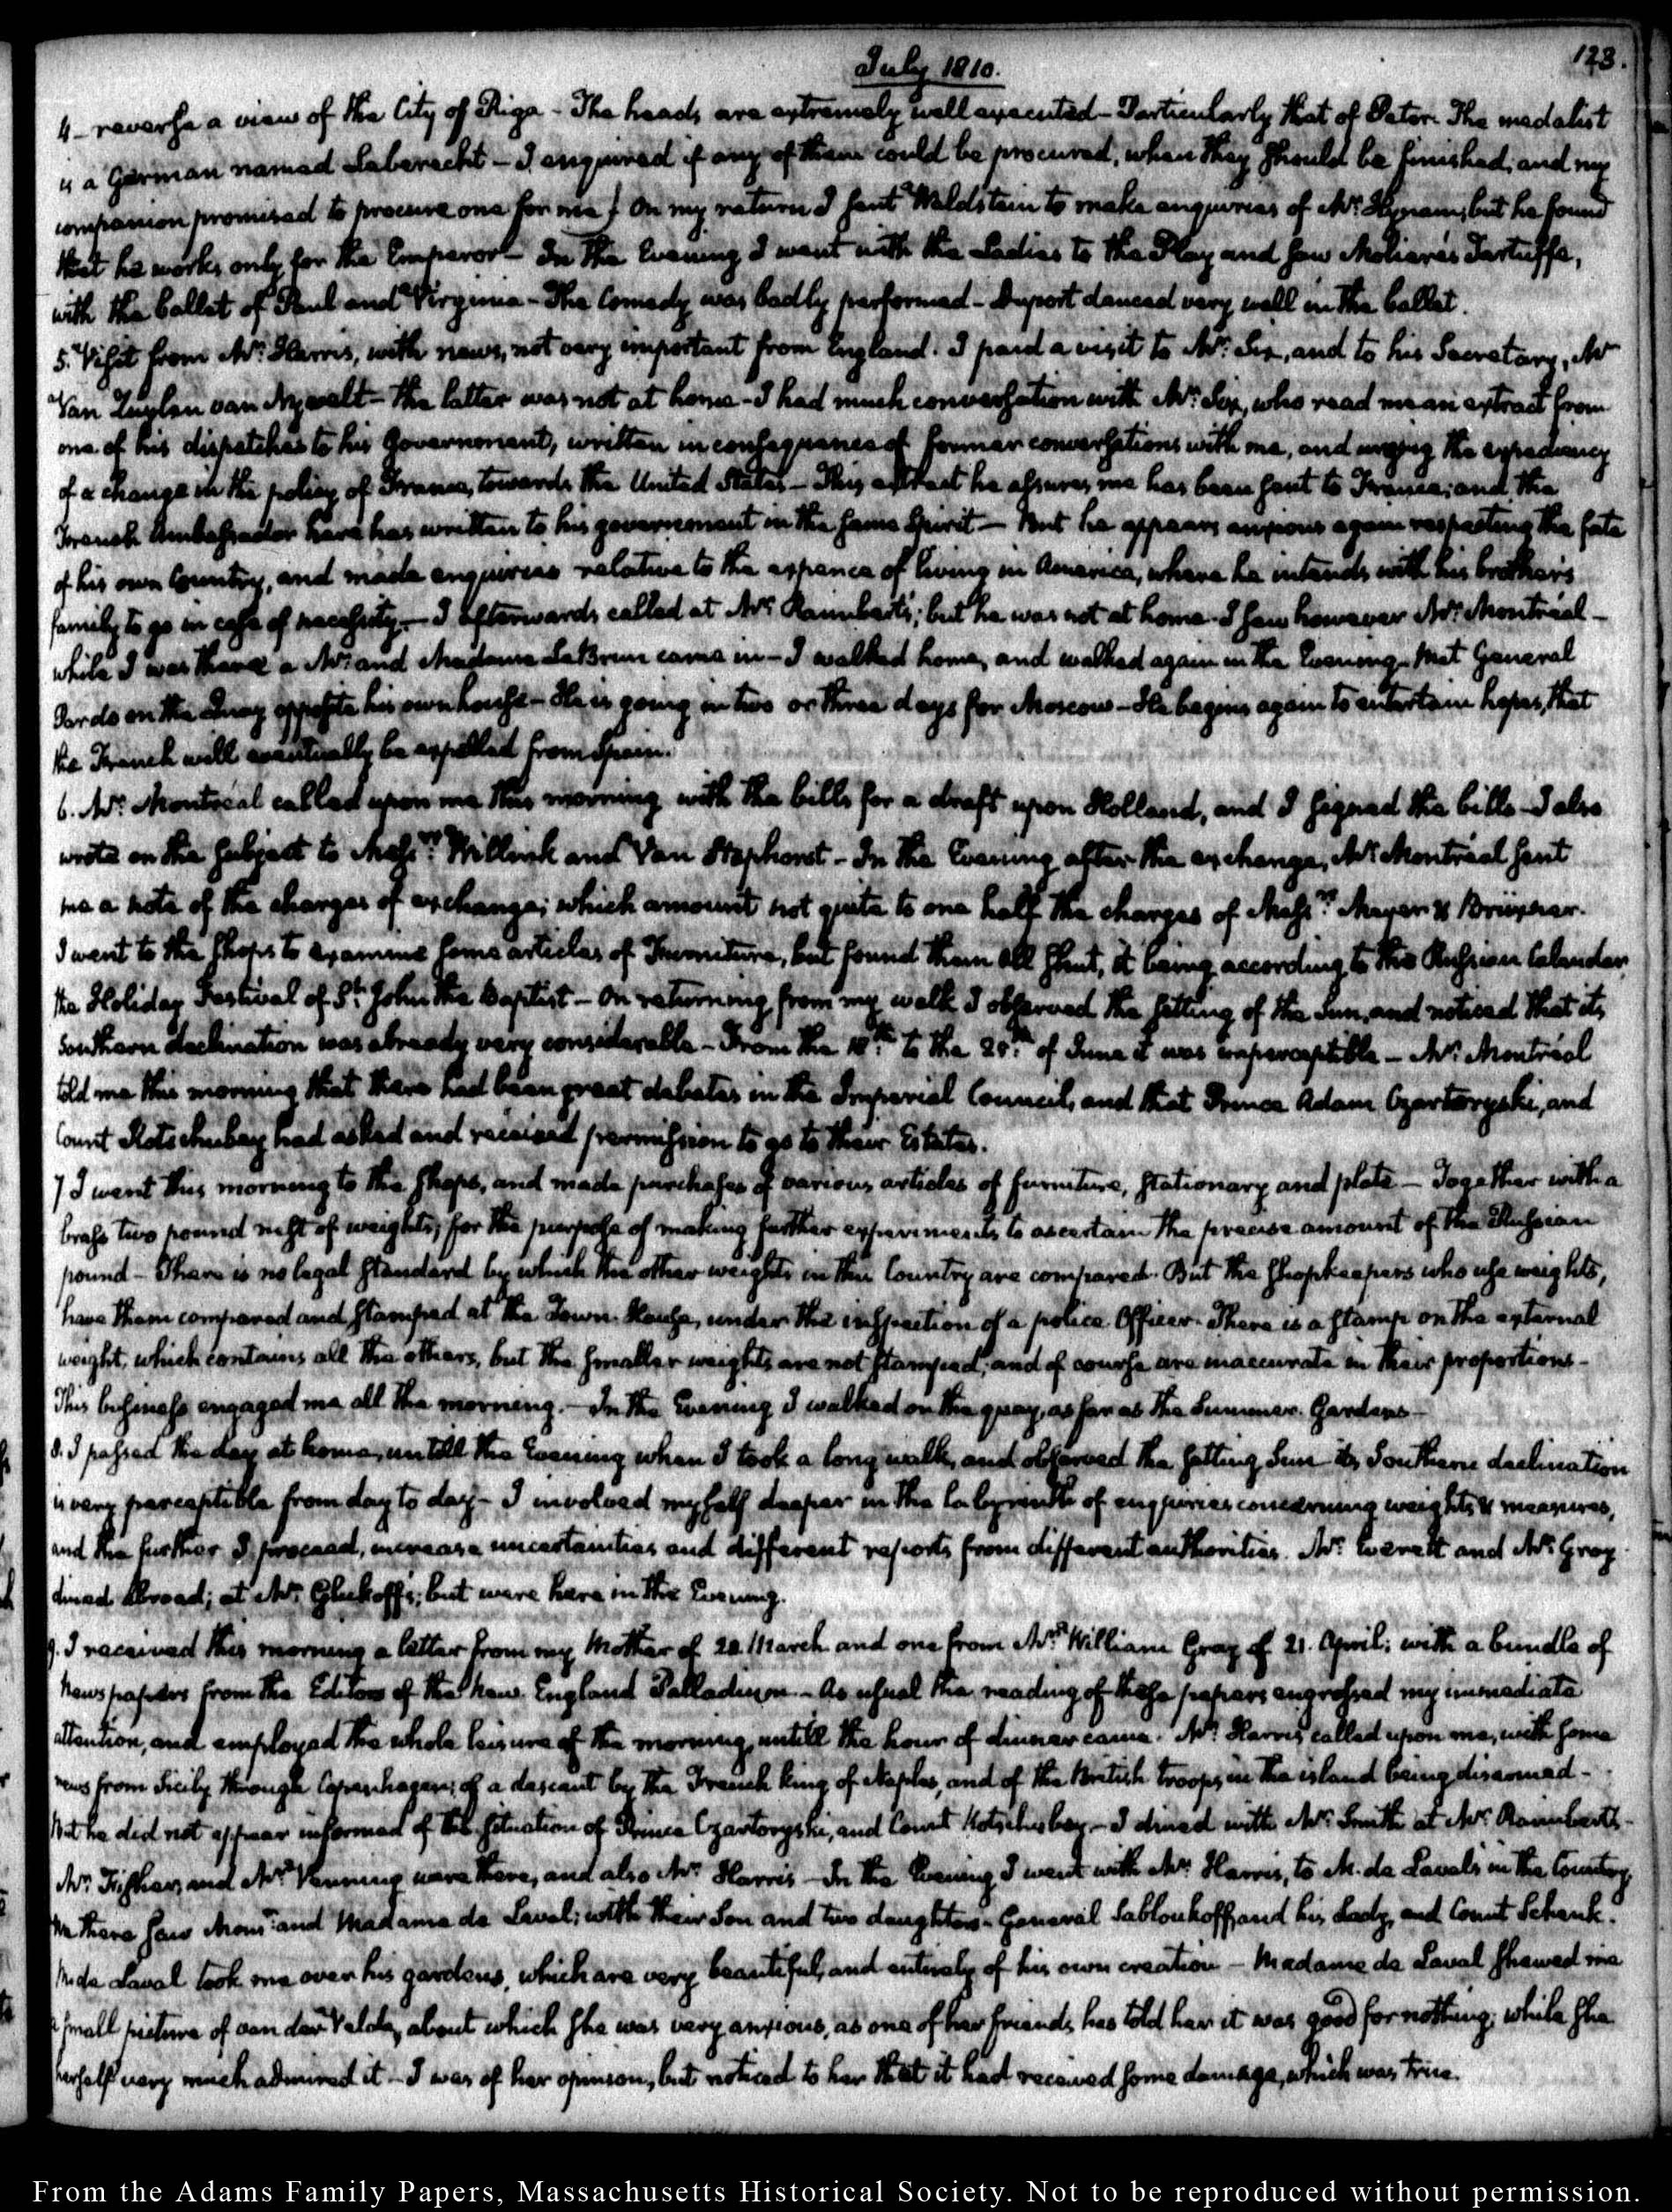 July 1810.
123.
4 - reverse a view of the City of Riga - The heads are extremely well executed - Particularly that of Peter. The medalist
is a German named Leberecht - I enquired if any of them could be procured, when they should be finished, and my
companion promised to procure one for me. On my return I sent Waldstein to make enquiries of Mr. Hynam, but he found
that he works only for the Emperor - In the Evening I went with the Ladies to the Play and saw Moliere's Tartuffe,
with the ballet of Paul and Virginia - The Comedy was badly performed - Duport danced very well in the ballet.
5. Visit from Mr. Harris, with news, not very important from England. I paid a visit to Mr. Six, and to his Secretary, Mr
Van Zuylen van Nyevelt - the latter was not at home - I had much conversation with Mr. Six, who read me an extract from
one of his dispatches to his Government, written in consequence of former conversations with me, and urging the expediency
of a change in the policy of France, towards the United States - This extract he assures me has been sent to France; and the
French Ambassador here has written to his government in the same Spirit - But he appears anxious again respecting the fate
of his own Country, and made enquiries relative to the expence of living in America, where he intends with his brother's
family to go in case of necessity. - I afterwards called at Mr. Raimbert's; but he was not at home. I saw however Mr. Montréal -
while I was there a Mr. and Madame LeBrun came in - I walked home, and walked again in the Evening. Met General
Pardo on the Quay opposite his own house - He is going in two or three days for Moscow - He begins again to entertain hopes, that
the French will eventually be expelled from Spain.
6. Mr. Montréal called upon me this morning with the bills for a draft upon Holland, and I signed the bills - I also
wrote on the subject to Messrs. Willink and Van Staphorst - In the Evening after the exchange, Mr. Montréal sent
me a note of the charges of exchange; which amount not quite to one half the charges of Messrs. Meyer & Brüxner.
I went to the shops to examine some articles of Furniture, but found them all shut, it being according to the Russian Calendar,
the Holiday Festival of St. John the Baptist - On returning from my walk I observed the setting of the Sun, and noticed that its
Southern declination was already very considerable - From the 18th. to the 28th. of June it was imperceptible - Mr. Montréal
told me this morning that there had been great debates in the Imperial Council, and that Prince Adam Czartoryski, and
Count Kotschubey had asked and received permission to go to their Estates.
7 I went this morning to the shops, and made purchases of various articles of furniture, stationary and plate - Together with a
brass two pound nest of weights; for the purpose of making further experiments to ascertain the precise amount of the Russian
pound - There is no legal standard by which the other weights in this Country are compared. But the shopkeepers who use weights,
have them compared and stamped at the Town-House, under the inspection of a police Officer. There is a stamp on the external
weight, which contains all the others, but the smaller weights are not stamped, and of course are inaccurate in their proportions -
This business engaged me all the morning. - In the Evening I walked on the quay, as far as the Summer Gardens -
8. I passed the day at home, untill the Evening when I took a long walk, and observed the setting Sun - its Southern declination
is very perceptible from day to day - I involved myself deeper in the labyrinth of enquiries concerning weights & measures,
and the further I proceed, increase uncertainties and different reports from different authorities. Mr. Everett and Mr. Gray
dined abroad; at Mr. Glukoff's; but were here in the Evening.
9. I received this morning a letter from my Mother of 22 March and one from Mr. William Gray of 21. April; with a bundle of
Newspapers from the Editors of the New England Palladium. - As usual the reading of these papers engrossed my immediate
attention, and employed the whole leisure of the morning, untill the hour of dinner came. Mr. Harris called upon me, with some
news from Sicily through Copenhagen; of a descent by the French king of Naples, and of the British troops in the island being disarmed -
But he did not appear informed of the situation of Prince Czartoryski, and Count Kotschubey. - I dined with Mr. Smith at Mr. Raimbert's -
Mr. Fisher, and Mr. Venning were there, and also Mr. Harris - In the Evening I went with Mr. Harris, to M. de Laval's in the Country.
We there saw Monsr. and Madame de Laval; with their Son and two daughters - General Sabloukoff and his Lady, and Count Schenk.
M. de Laval took me over his gardens, which are very beautiful, and entirely of his own creation - Madame de Laval shewed me
a small picture of van der Velde, about which she was very anxious, as one of her friends has told her it was good for nothing; while she
herself very much admired it - I was of her opinion, but noticed to her that it had received some damage, which was true.
From the Adams Family Papers, Massachusetts Historical Society. Not to be reproduced without permission.